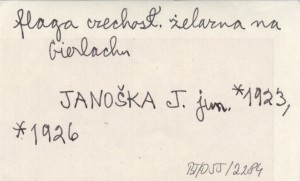 flaga czechosł. żelazna na
Gierlachu
JANOŠKA J. jun. *1923,
*1926